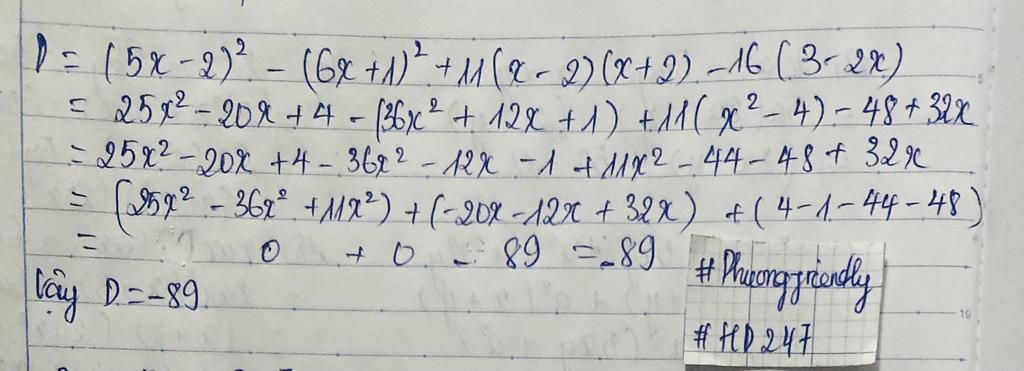 D = (5x - 2)² - (6x + 1)² + 11(x - 2)(x + 2) - 16(3 - 2x)
= 25x² - 20x + 4 - (36x² + 12x + 1) + 11(x² - 4) - 48 + 32x
= 25x² - 20x + 4 - 36x² - 12x - 1 + 11x² - 44 - 48 + 32x
= (25x² - 36x² + 11x²) + (-20x - 12x + 32x) + (4 - 1 - 44 - 48)
= 0 + 0 - 89 = -89
Vậy D = -89
# Phuongfriendly
# HD247